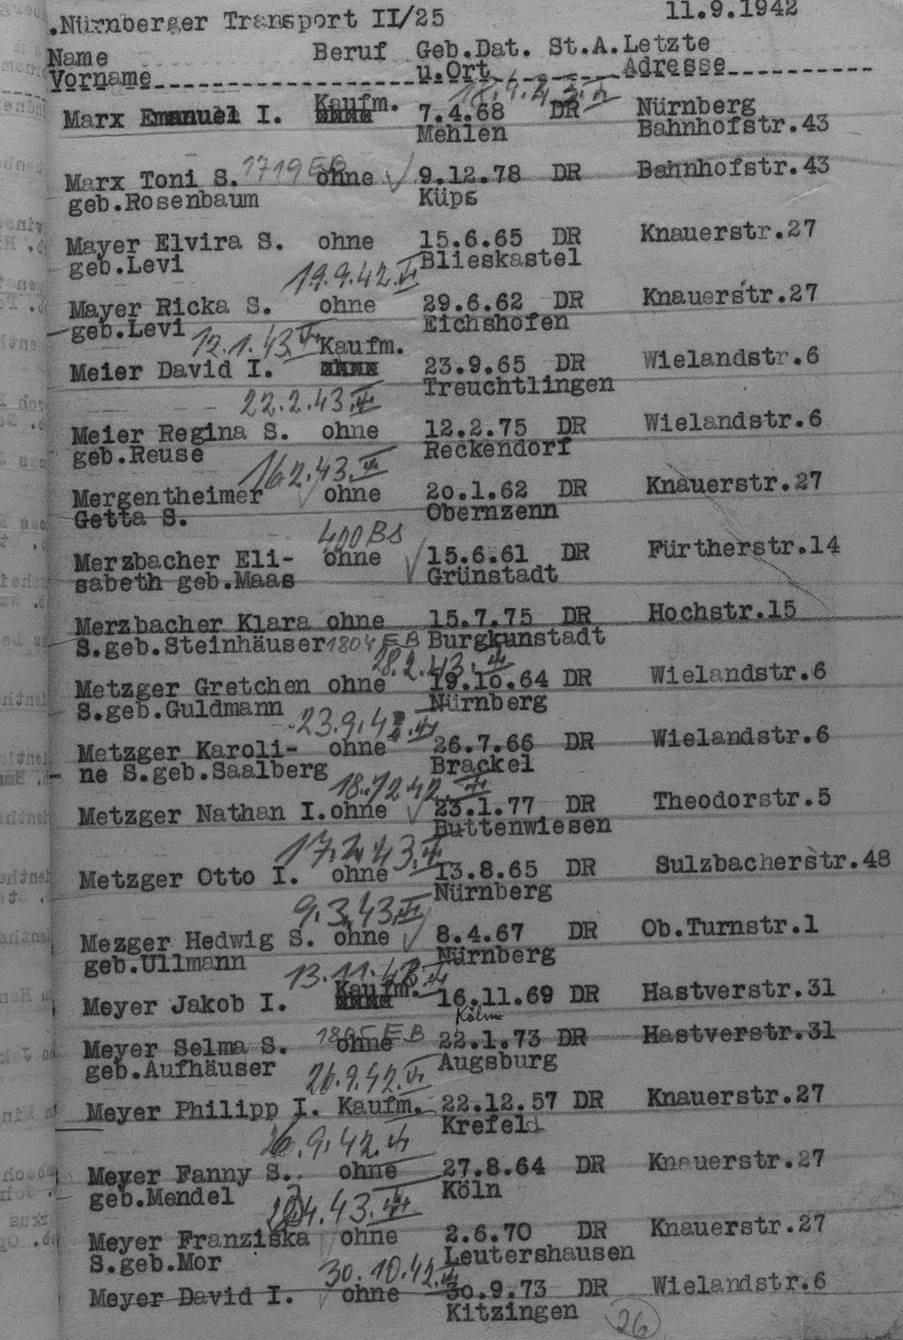 .Nürnberger Transport II/25 11.9.1942
Name Beruf Geb.Dat. St.A. Letzte
Vorname u.Ort Adresse
18.4.43
Marx Emanuel I. Kaufm. 7.4.68 DR Nürnberg
Mehlen Bahnhofstr.43
Marx Toni S. 1719 EB ohne 9.12.78 DR Bahnhofstr.43
geb.Rosenbaum Küps
Mayer Elvira S. ohne 15.6.65 DR Knauerstr.27
geb.Levi Blieskastel
19.9.42.
Mayer Ricka S. ohne 29.6.62 DR Knauerstr.27
geb.Levi Eichshofen
12.1.43.
Meier David I. Kaufm. 23.9.65 DR Wielandstr.6
Treuchtlingen
22.2.43
Meier Regina S. ohne 12.2.75 DR Wielandstr.6
geb.Reuse Reckendorf
16.2.43.
Mergentheimer ohne 20.1.62 DR Knauerstr.27
Getta S. Obernzenn
400 BS
Merzbacher Eli- ohne 15.6.61 DR Fürtherstr.14
sabeth geb.Maas Grünstadt
Merzbacher Klara ohne 15.7.75 DR Hochstr.15
S.geb.Steinhäuser 1804 EB Burgkunstadt
28.2.43.
Metzger Gretchen ohne 19.10.64 DR Wielandstr.6
S.geb.Guldmann Nürnberg
23.9.42
Metzger Karoli- ohne 26.7.66 DR Wielandstr.6
ne S.geb.Saalberg Brackel
18.12.42.
Metzger Nathan I.ohne 23.1.77 DR Theodorstr.5
Buttenwiesen
17.2.43.
Metzger Otto I. ohne 13.8.65 DR Sulzbacherstr.48
Nürnberg
9.3.43.
Mezger Hedwig S. ohne 8.4.67 DR Ob.Turnstr.1
geb.Ullmann Nürnberg
13.11.42
Meyer Jakob I. Kaufm. 16.11.69 DR Hastverstr.31
Köln
Meyer Selma S. 1805 EB ohne 22.1.73 DR Hastverstr.31
geb.Aufhäuser Augsburg
26.9.42.
Meyer Philipp I. Kaufm. 22.12.57 DR Knauerstr.27
Krefeld
26.9.42.
Meyer Fanny S. ohne 27.8.64 DR Knauerstr.27
geb.Mendel Köln
4.43.
Meyer Franziska ohne 2.6.70 DR Knauerstr.27
S.geb.Mor Leutershausen
30.10.42.
Meyer David I. ohne 30.9.73 DR Wielandstr.6
Kitzingen
26